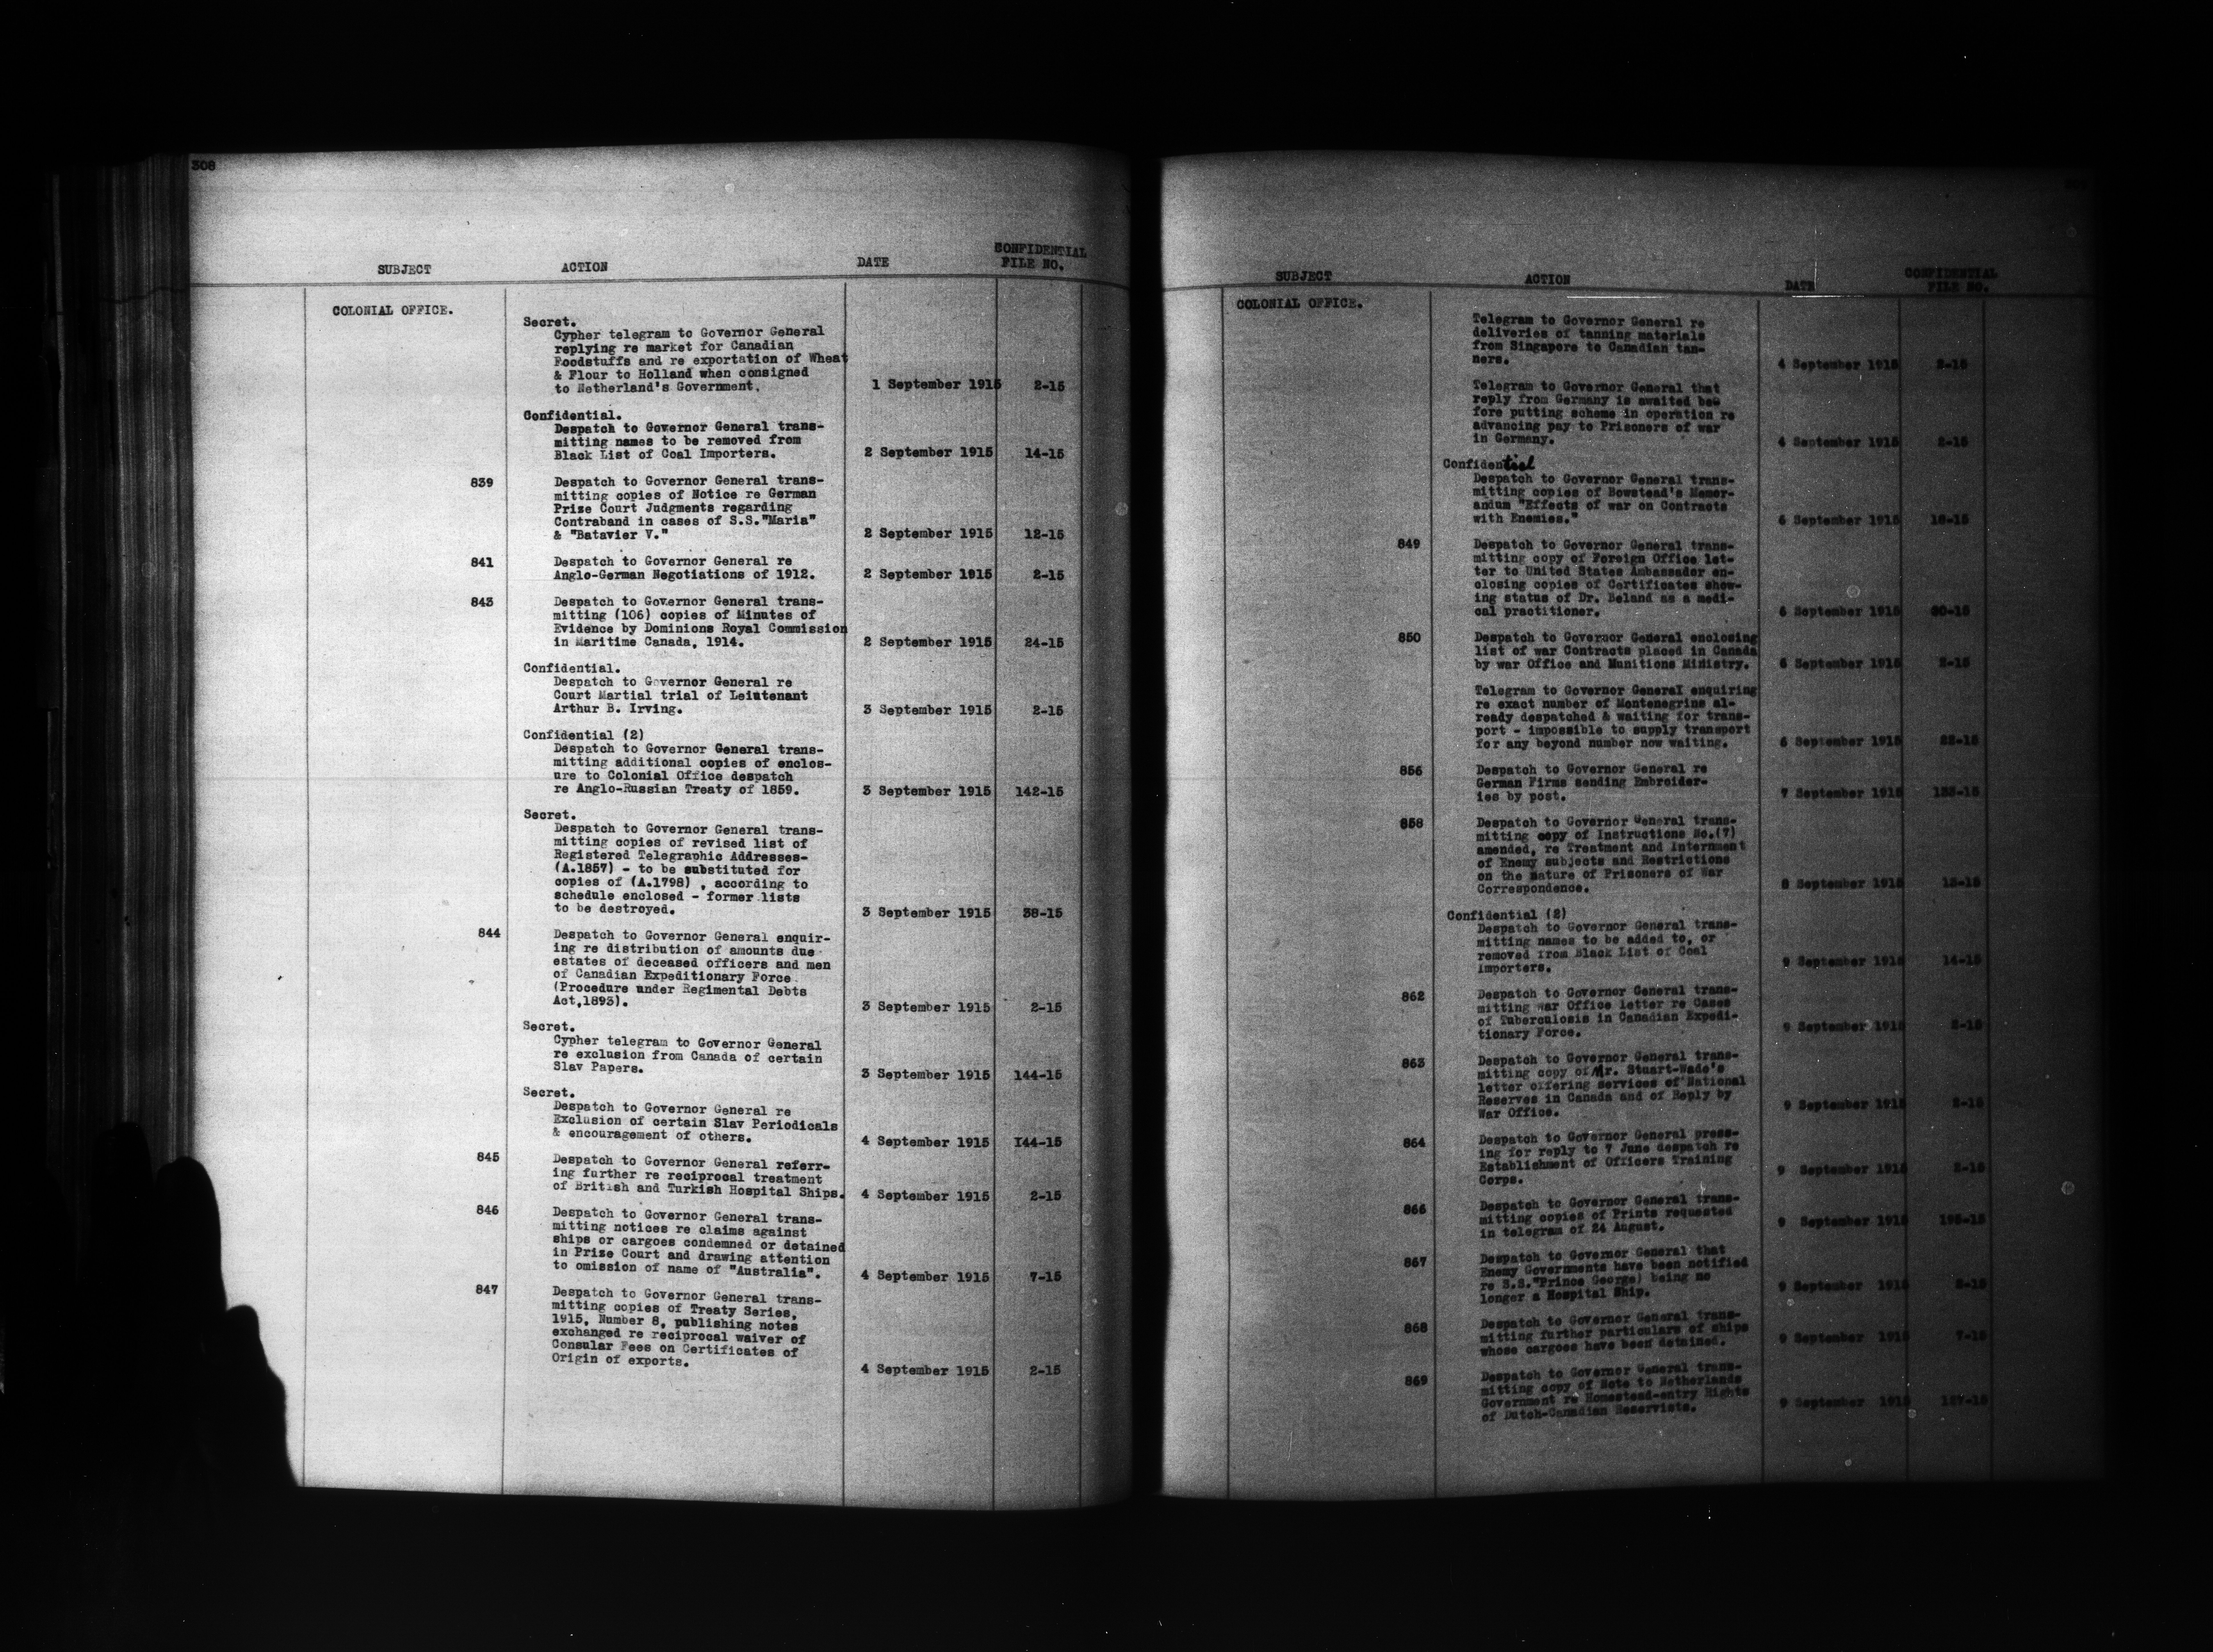 308
SUBJECT ACTION DATE CONFIDENTIAL FILE NO.
COLONIAL OFFICE.
Secret.
Cypher telegram to Governor General
replying re market for Canadian
Foodstuffs and re exportation of Wheat
& Flour to Holland when consigned
to Netherland's Government. 1 September 1915 2-15
Confidential.
Despatch to Governor General trans-
mitting names to be removed from
Black List of Coal Importers. 2 September 1915 14-15
839 Despatch to Governor General trans-
mitting copies of Notice re German
Prize Court Judgments regarding
Contraband in cases of S.S."Maria"
& "Batavier V." 2 September 1915 12-15
841 Despatch to Governor General re
Anglo-German Negotiations of 1912. 2 September 1915 2-15
843 Despatch to Governor General trans-
mitting (106) copies of Minutes of
Evidence by Dominions Royal Commission
in Maritime Canada, 1914. 2 September 1915 24-15
Confidential.
Despatch to Governor General re
Court Martial trial of Leiutenant
Arthur B. Irving. 3 September 1915 2-15
Confidential (2)
Despatch to Governor General trans-
mitting additional copies of enclos-
ure to Colonial Office despatch
re Anglo-Russian Treaty of 1859. 3 September 1915 142-15
Secret.
Despatch to Governor General trans-
mitting copies of revised list of
Registered Telegraphic Addresses-
(A.1857) - to be substituted for
copies of (A.1798) , according to
schedule enclosed - former lists
to be destroyed. 3 September 1915 38-15
844 Despatch to Governor General enquir-
ing re distribution of amounts due
estates of deceased officers and men
of Canadian Expeditionary Force
(Procedure under Regimental Debts
Act,1893). 3 September 1915 2-15
Secret.
Cypher telegram to Governor General
re exclusion from Canada of certain
Slav Papers. 3 September 1915 144-15
Secret.
Despatch to Governor General re
Exclusion of certain Slav Periodicals
& encouragement of others. 4 September 1915 144-15
845 Despatch to Governor General referr-
ing further re reciprocal treatment
of British and Turkish Hospital Ships. 4 September 1915 2-15
846 Despatch to Governor General trans-
mitting notices re claims against
ships or cargoes condemned or detained
in Prize Court and drawing attention
to omission of name of "Australia". 4 September 1915 7-15
847 Despatch to Governor General trans-
mitting copies of Treaty Series,
1915, Number 8, publishing notes
exchanged re reciprocal waiver of
Consular Fees on Certificates of
Origin of exports. 4 September 1915 2-15
SUBJECT ACTION DATE CONFIDENTIAL FILE NO.
COLONIAL OFFICE.
Telegram to Governor General re
deliveries of tanning materials
from Singapore to Canadian tan-
ners. 4 September 1915 2-15
Telegram to Governor General that
reply from Germany is awaited be-
fore putting scheme in operation re
advancing pay to Prisoners of war
in Germany. 4 September 1915 2-15
Confidential
Despatch to Governor General trans-
mitting copies of Bowstead's Memor-
andum "Effects of war on Contracts
with Enemies." 6 September 1915
849 Despatch to Governor General trans-
mitting copy of Foreign Office let-
ter to United States Ambassador en-
closing copies of Certificates show-
ing status of Dr. Beland as a medi-
cal practitioner. 6 September 1915
850 Despatch to Governor General enclosing
list of war Contracts placed in Canada
by war Office and Munitions Ministry. 6 September 1915 2-15
Telegram to Governor General enquiring
re exact number of Montenegrins al-
ready despatched & waiting for trans-
port - impossible to supply transport
for any beyond number now waiting. 6 September 1915
856 Despatch to Governor General re
German Firms sending Embroider-
ies by post. 7 September 1915
858 Despatch to Governor General trans-
mitting copy of Instructions No.(7)
amended, re Treatment and Internment
of Enemy subjects and Restrictions
on the nature of Prisoners of War
Correspondence. 8 September 1915
Confidential (2)
Despatch to Governor General trans-
mitting names to be added to, or
removed from Black List of Coal
Importers. 9 September 1915 14-15
862 Despatch to Governor General trans-
mitting War Office letter re Cases
of Tuberculosis in Canadian Expedi-
tionary Force. 9 September 1915 2-15
863 Despatch to Governor General trans-
mitting copy of Mr. Stuart-Wade's
letter offering services of National
Reserves in Canada and of Reply by
War Office. 9 September 1915 2-15
864 Despatch to Governor General press-
ing for reply to 7 June despatch re
Establishment of Officers Training
Corps. 9 September 1915 2-15
866 Despatch to Governor General trans-
mitting copies of Prints requested
in telegram of 24 August. 9 September 1915
867 Despatch to Governor General that
Enemy Governments have been notified
re S.S."Prince George) being no
longer a Hospital Ship. 9 September 1915
868 Despatch to Governor General trans-
mitting further particulars of ships
whose cargoes have been detained. 9 September 1915 7-15
869 Despatch to Governor General trans-
mitting copy of Note to Netherlands
Government re Homestead-entry Rights
of Dutch-Canadian Reservists. 9 September 1915